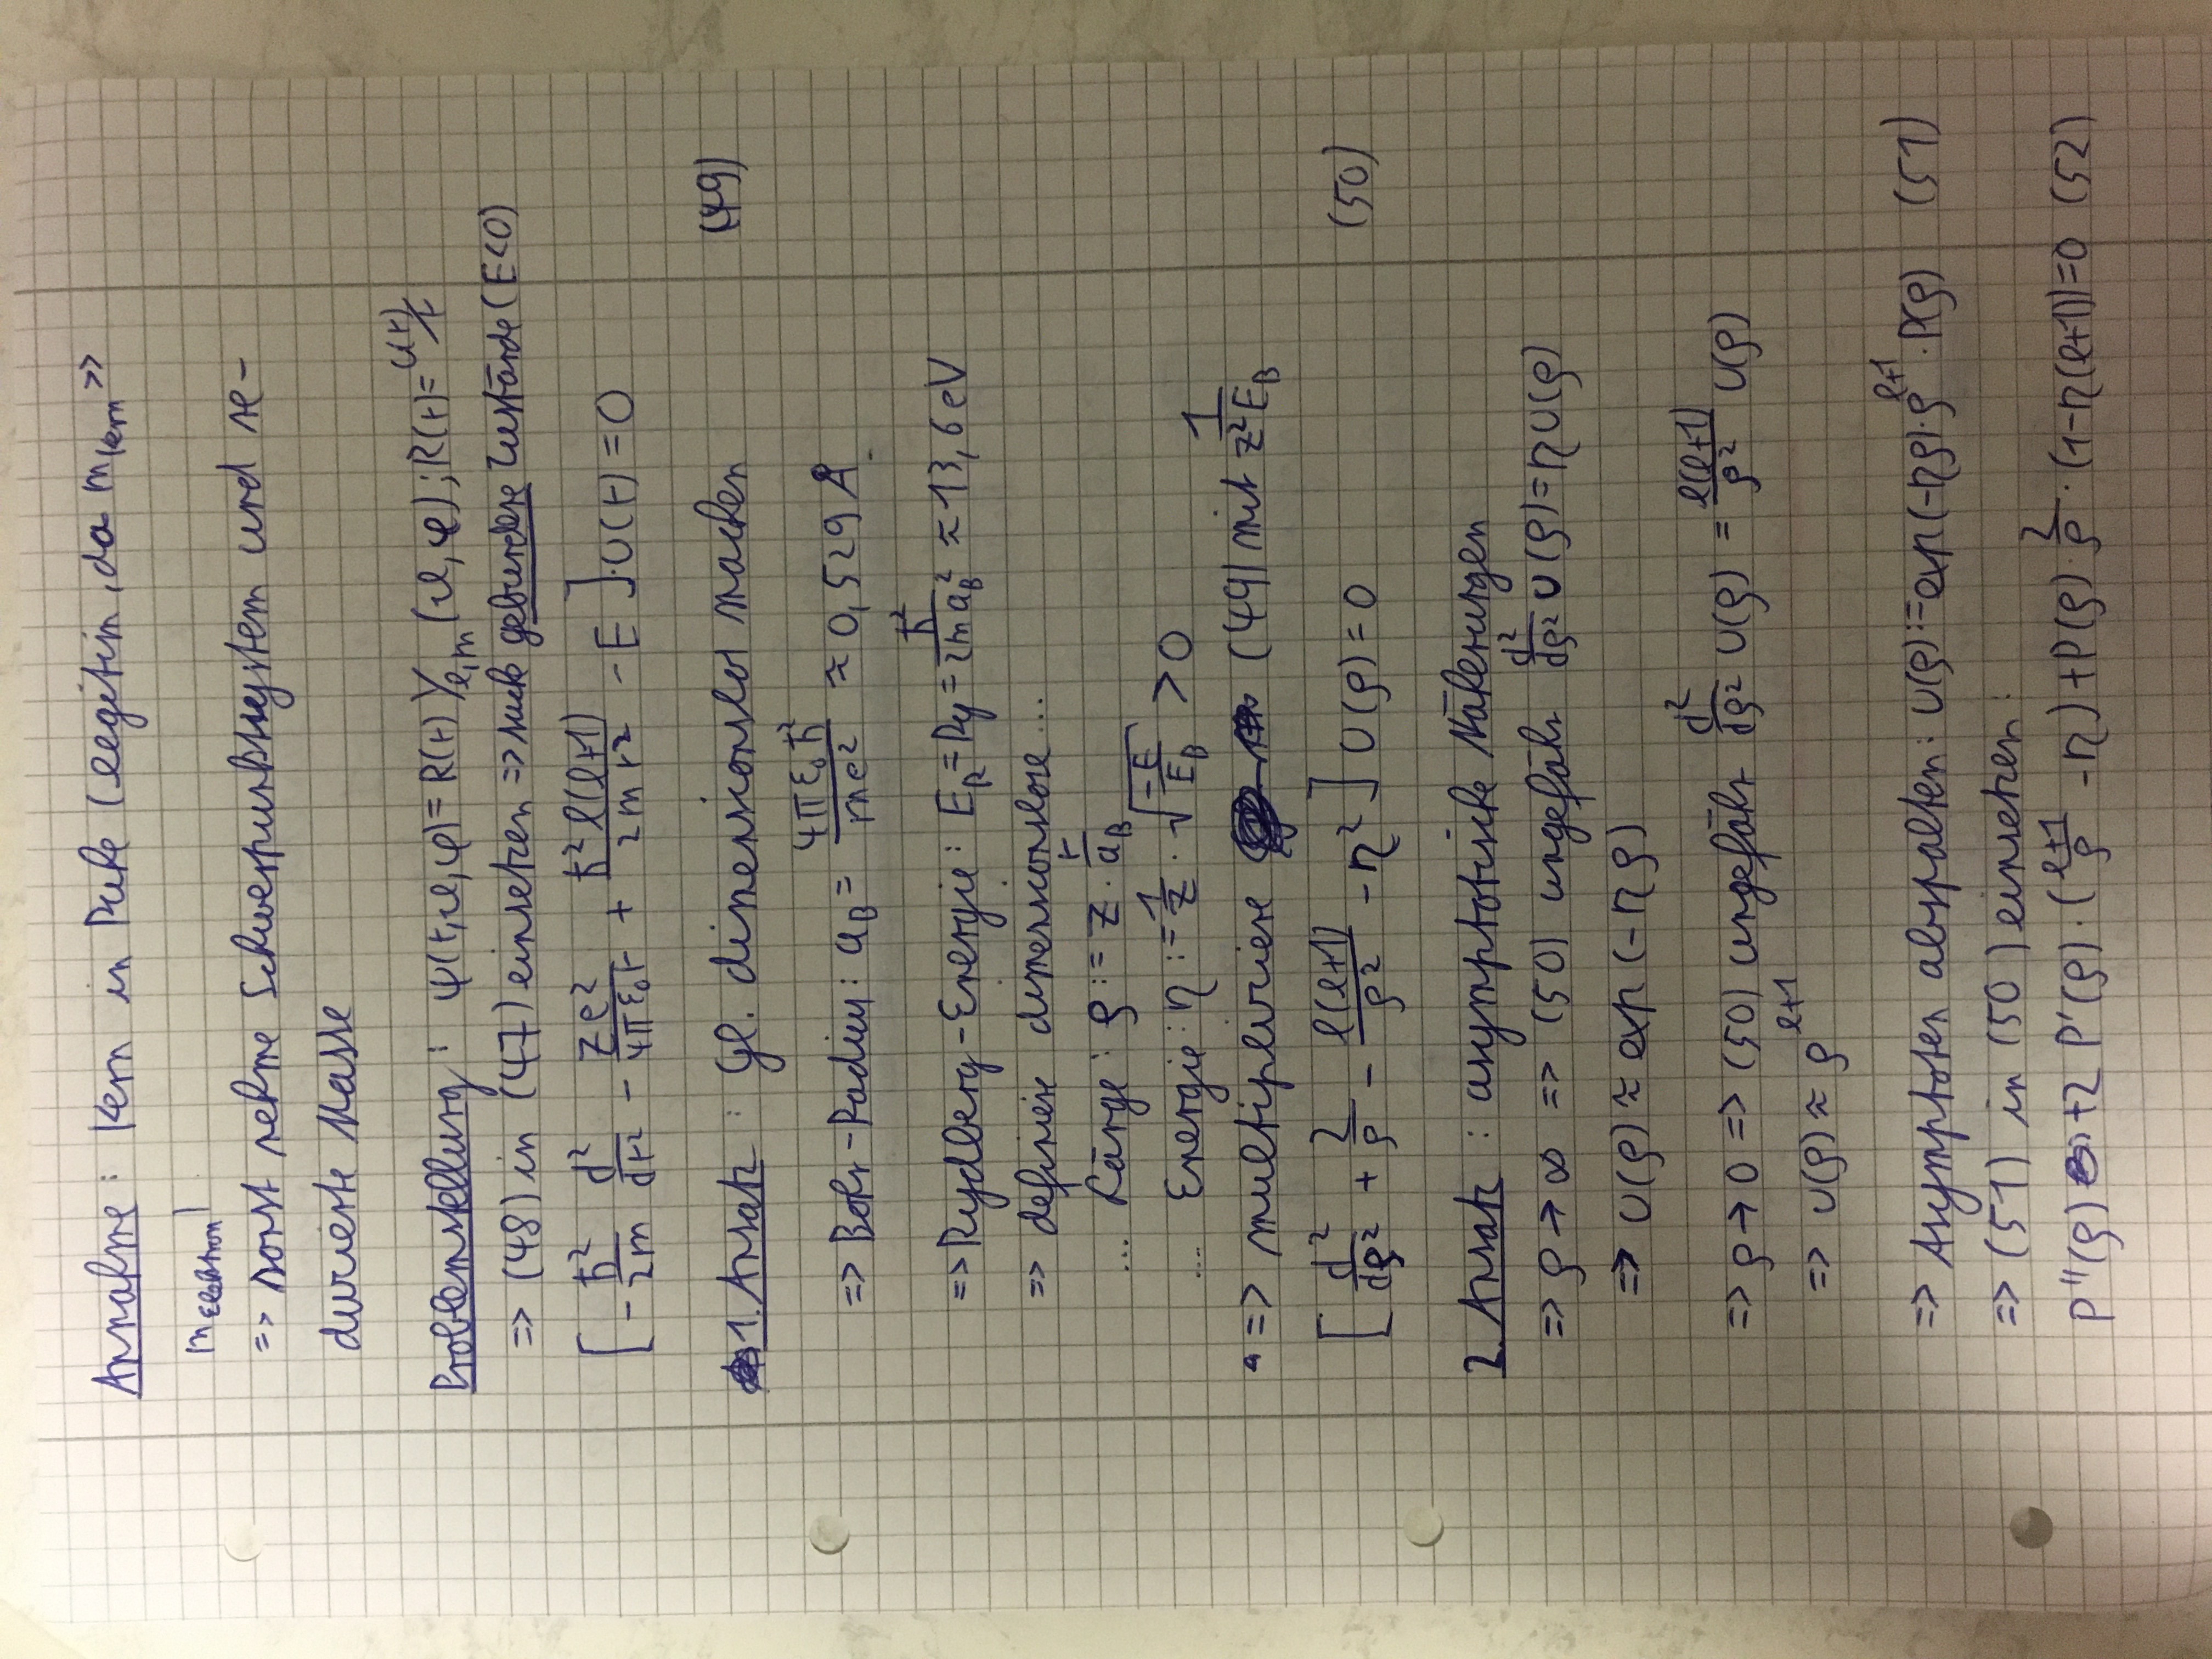 Annahme: Kern in Ruhe (legitim, da m_Kern >>
m_Elektron)
=> sonst nehme Schwerpunktsystem und re-
duzierte Masse
Problemstellung: ψ(r,ϑ,φ) = R(r) Y_l,m (ϑ,φ); R(r) = U(r)/r
=> (48) in (47) einsetzen => suche gebundene Zustände (E<0)
[-ħ²/2m d²/dr² - Ze²/4πε₀r + ħ²l(l+1)/2mr² - E]·U(r) = 0
1. Ansatz: Gl. dimensionslos machen (49)
=> Bohr-Radius: a_B = 4πε₀ħ²/me² ≈ 0,529 Å
=> Rydberg-Energie: E_R = Ry = ħ²/2ma_B² ≈ 13,6 eV
=> definiere dimensionslose ...
... Länge: ρ := Z · r/a_B
... Energie: η := 1/Z · √(-E/E_B) > 0
=> multipliziere (49) mit 1/Z²E_B
[d²/dρ² + 2/ρ - l(l+1)/ρ² - η²] U(ρ) = 0 (50)
2. Ansatz: asymptotische Näherungen
=> ρ → ∞ => (50) ungefähr d²/dρ² U(ρ) = η U(ρ)
=> U(ρ) ≈ exp(-ηρ)
=> ρ → 0 => (50) ungefähr d²/dρ² U(ρ) = l(l+1)/ρ² U(ρ)
=> U(ρ) ≈ ρ^l+1
=> Asymptoten abspalten: U(ρ) := exp(-ηρ)·ρ^l+1·P(ρ) (51)
=> (51) in (50) einsetzen:
P''(ρ) + 2 P'(ρ)·(l+1/ρ - η) + P(ρ)·2/ρ·(1-η(l+1)) = 0 (52)